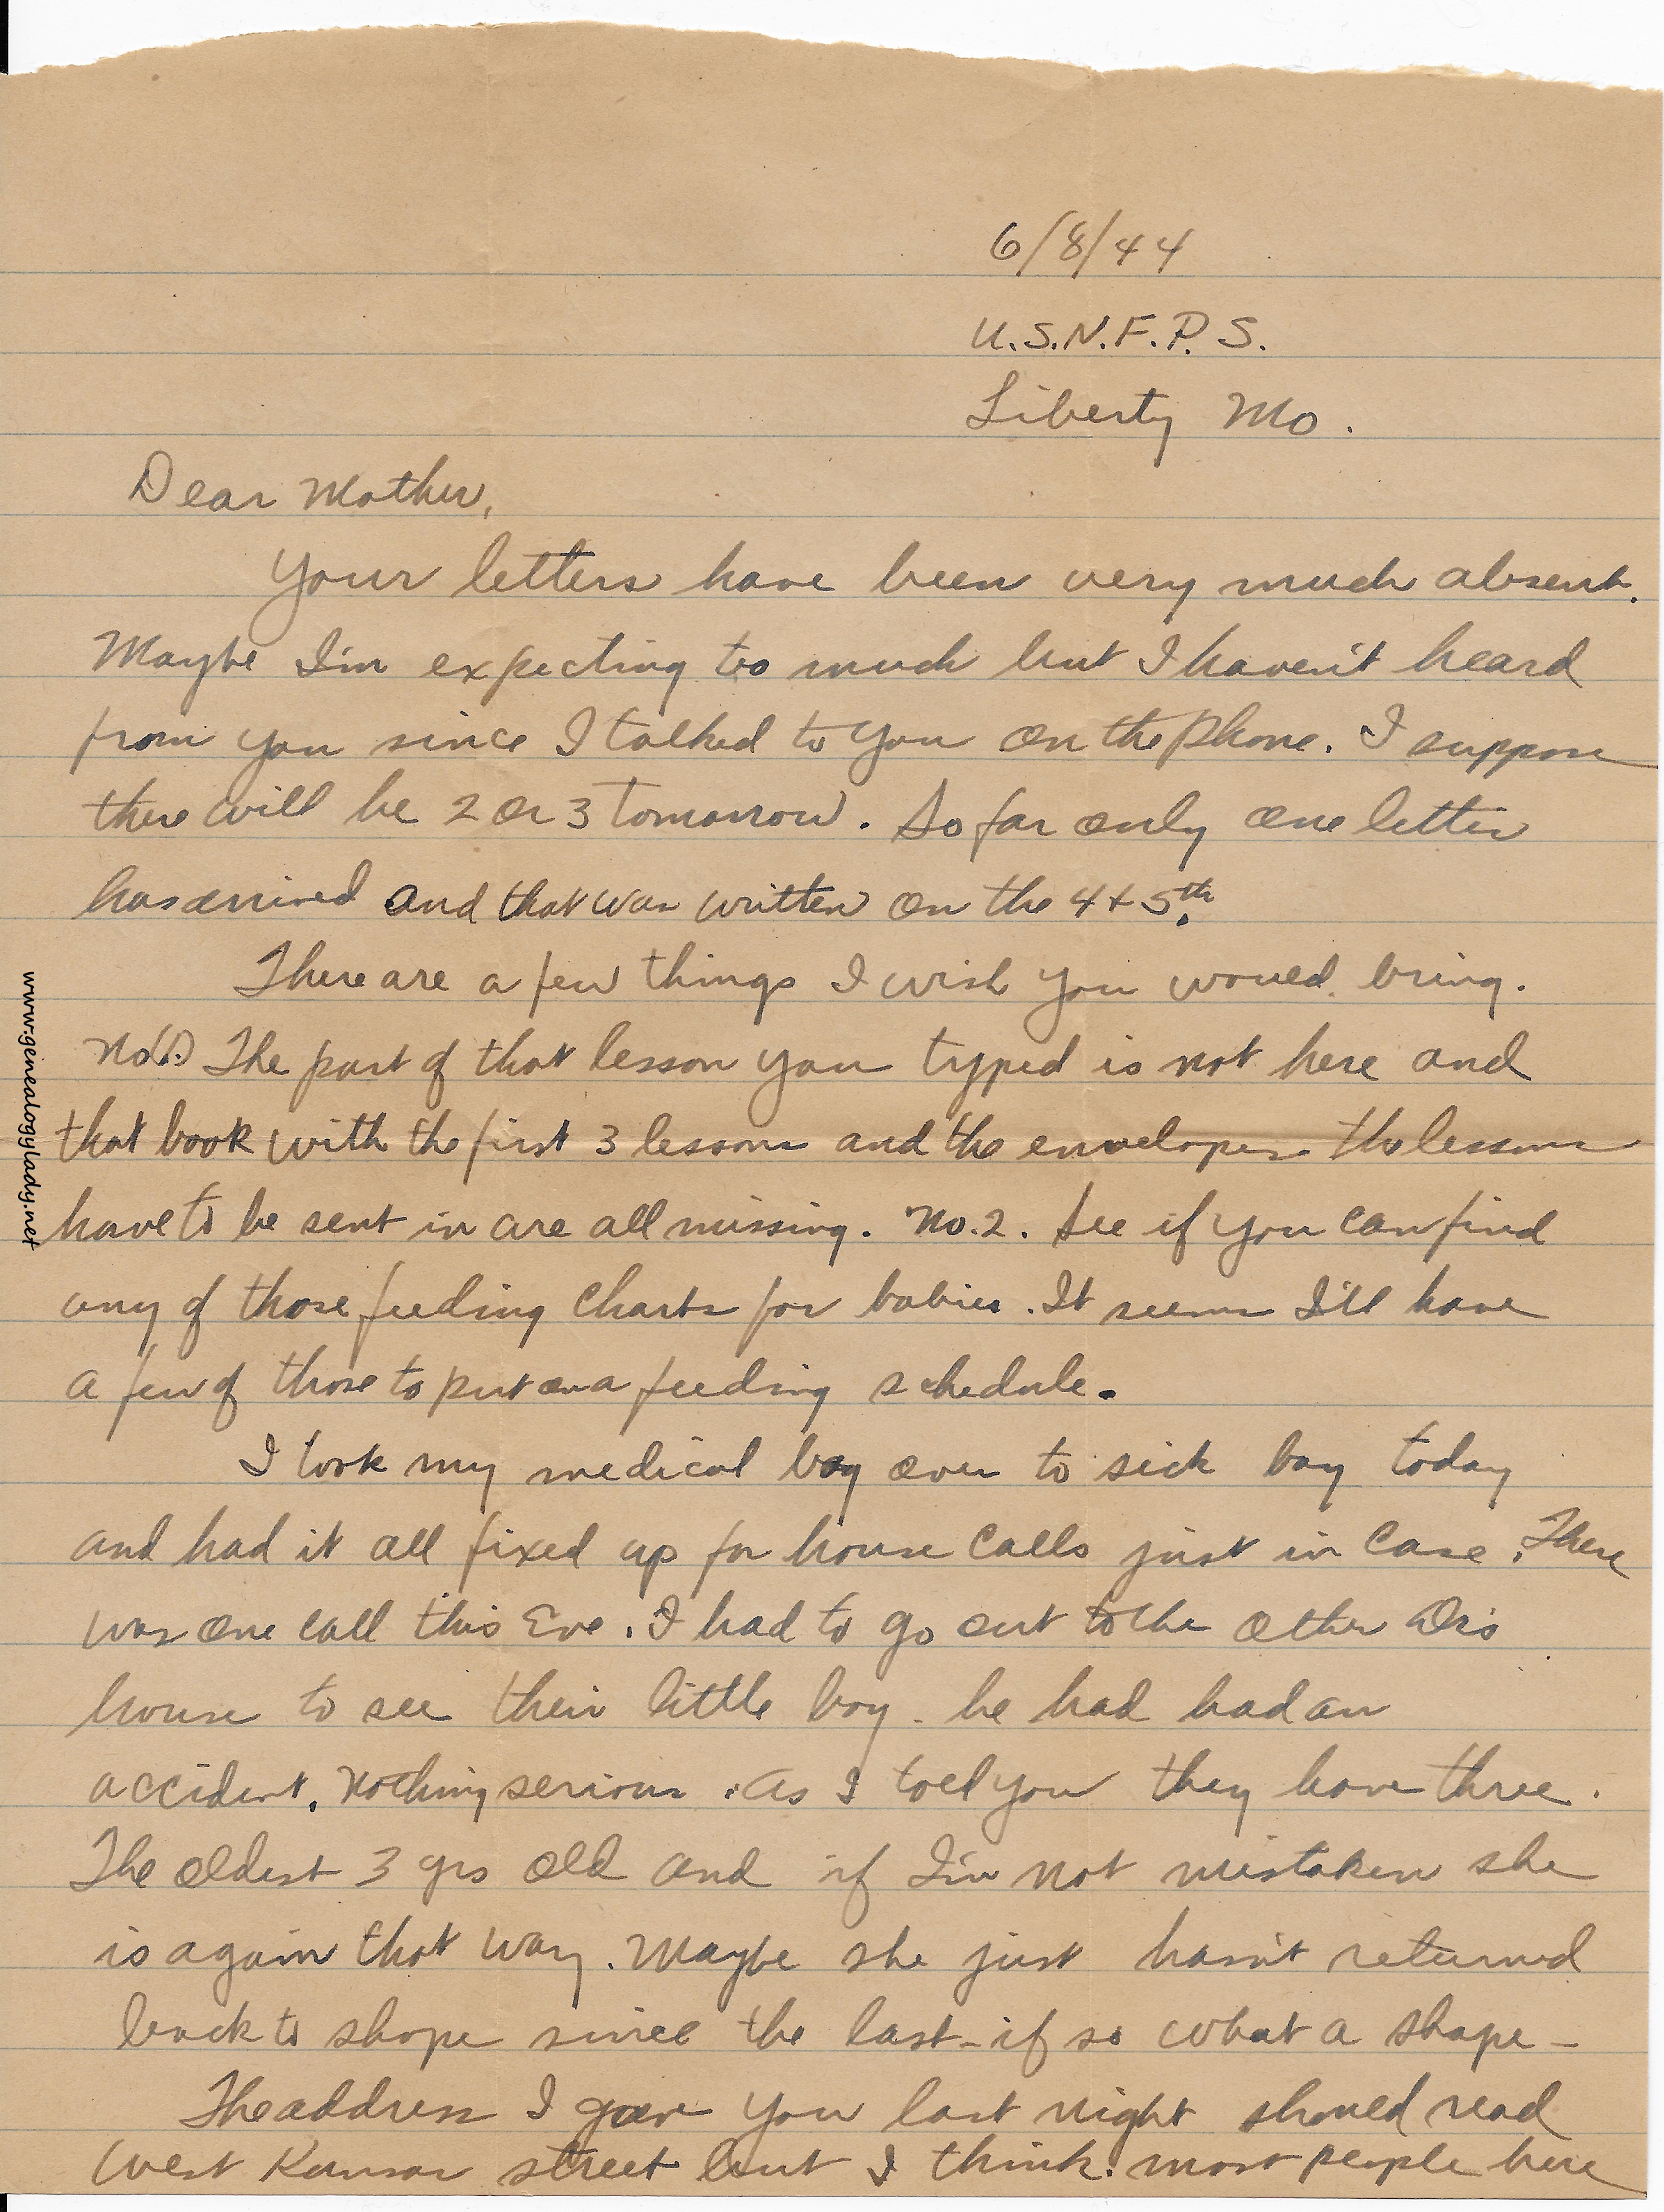 6/8/44
U.S.N.F.P.S.
Liberty Mo.
Dear Mother,
Your letters have been very much absent.
Maybe I'm expecting too much but I haven't heard
from you since I talked to you on the phone. I suppose
there will be 2 or 3 tomorrow. So far only one letter
has arrived and that was written on the 4 + 5th.
There are a few things I wish you would bring.
No (1) The part of that lesson you typed is not here and
that book with the first 3 lessons and the envelopes the lessons
have to be sent in are all missing. No. 2. See if you can find
any of those feeding charts for babies. It seems I'll have
a few of those to put on a feeding schedule.
I took my medical bag over to sick bay today
and had it all fixed up for house calls just in case. There
was one call this Eve. I had to go out to the other Drs
house to see their little boy. he had had an
accident. Nothing serious. As I told you they have three.
The oldest 3 yrs old and if I'm not mistaken she
is again that way. Maybe she just hasn't returned
back to shape since the last - if so what a shape -
The address I gave you last night should read
West Kansas street but I think most people here
www.genealogylady.net